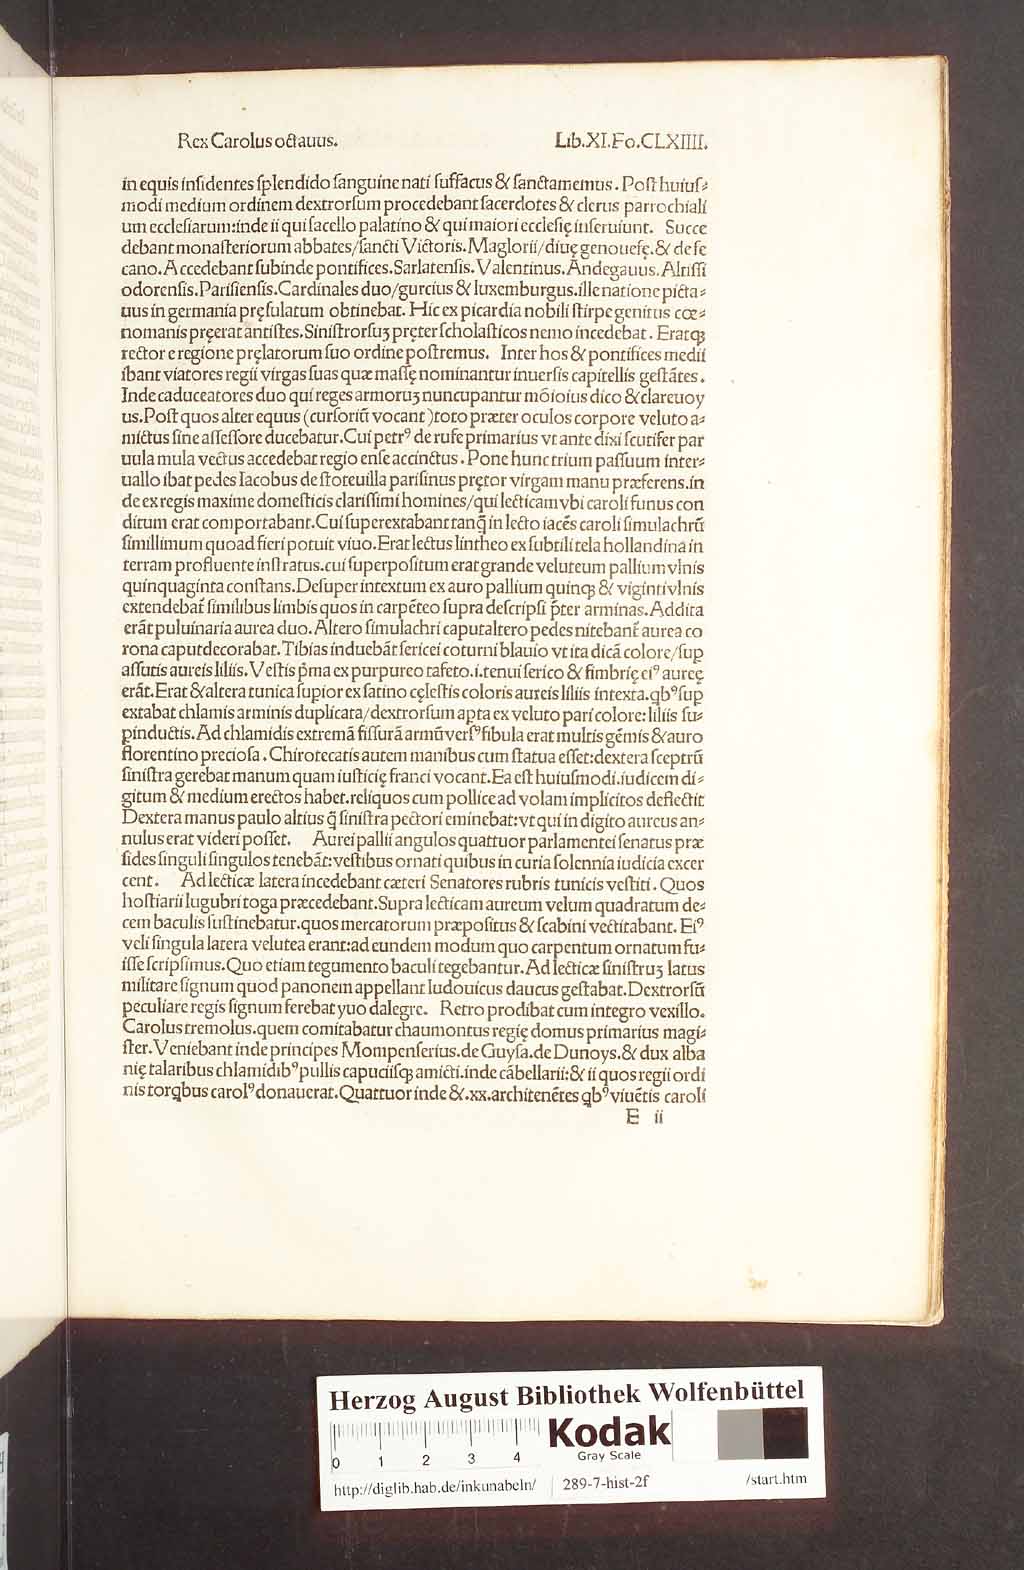 Rex Carolus octauus. Lib.XI.Fo.CLXIIII.
in equis insidentes splendido sanguine nati suffacus & sanctamemus. Post huius⸗
modi medium ordinem dextrorsum procedebant sacerdotes & clerus parrochiali
um ecclesiarum:inde ii qui sacello palatino & qui maiori ecclesię inseruiunt. Succe
debant monasteriorum abbates/sancti Victoris. Maglorii/diuę genouefę.& de se
cano. Accedebant subinde pontifices. Sarlatensis. Valentinus. Andegauus. Altissi
odorensis. Parisiensis. Cardinales duo/gurcius & luxemburgus.ille natione picta⸗
uus in germania pręsulatum obtinebat. Hic ex picardia nobili stirpe genitus cœ⸗
nomanis pręerat antistes. Sinistrorsuꝫ pręter scholasticos nemo incedebat. Eratqꝫ
rector e regione pręlatorum suo ordine postremus. Inter hos & pontifices medii
ibant viatores regii virgas suas quæ massę nominantur inuersis capitellis gestātes.
Inde caduceatores duo qui reges armoruꝫ nuncupantur mōioius dico & clareuoy
us. Post quos alter equus (cursoriū vocant) toto præter oculos corpore veluto a⸗
mictus sine assessore ducebatur. Cui petrꝰ de rufe primarius vt ante dixi scutifer par
uula mula vectus accedebat regio ense accinctus. Pone hunc trium passuum inter⸗
uallo ibat pedes Iacobus de stoteuilla parisinus prętor virgam manu præferens.in
de ex regis maxime domesticis clarissimi homines/qui lecticam vbi caroli funus con
ditum erat comportabant. Cui superextabant tanq̄ in lecto iacēs caroli simulachrū
simillimum quoad fieri potuit viuo. Erat lectus lintheo ex subtili tela hollandina in
terram profluente instratus.cui superpositum erat grande veluteum pallium vlnis
quinquaginta constans. Desuper intextum ex auro pallium quinqꝫ & viginti vlnis
extendebat̄ similibus limbis quos in carpēteo supra descripsi p̄ter arminas. Addita
erāt puluinaria aurea duo. Altero simulachri caput altero pedes nitebant̄ aurea co
rona caput decorabat. Tibias induebāt sericei coturni blauio vt ita dicā colore/sup
assutis aureis liliis. Vestis p̄ma ex purpureo tafeto.i.tenui serico & fimbrię eiꝰ aureę
erāt. Erat & altera tunica supior ex satino cęlestis coloris aureis liliis intexta.qbꝰ sup
extabat chlamis arminis duplicata/dextrorsum apta ex veluto pari colore: liliis su⸗
pinductis. Ad chlamidis extremā fissurā armū versꝰ fibula erat multis gēmis & auro
florentino preciosa. Chirotecatis autem manibus cum statua esset:dextera sceptrū
sinistra gerebat manum quam iusticię franci vocant. Ea est huiusmodi.iudicem di⸗
gitum & medium erectos habet.reliquos cum pollice ad volam implicitos deflectit
Dextera manus paulo altius q̄ sinistra pectori eminebat:vt qui in digito aureus an⸗
nulus erat videri posset. Aurei pallii angulos quattuor parlamentei senatus præ
sides singuli singulos tenebāt:vestibus ornati quibus in curia solennia iudicia excer
cent. Ad lecticæ latera incedebant cæteri Senatores rubris tunicis vestiti. Quos
hostiarii lugubri toga præcedebant. Supra lecticam aureum velum quadratum de⸗
cem baculis sustinebatur.quos mercatorum præpositus & scabini vectitabant. Eiꝰ
veli singula latera velutea erant:ad eundem modum quo carpentum ornatum fu⸗
isse scripsimus. Quo etiam tegumento baculi tegebantur. Ad lecticæ sinistruꝫ latus
militare signum quod panonem appellant ludouicus daucus gestabat. Dextrorsū
peculiare regis signum ferebat yuo dalegre. Retro prodibat cum integro vexillo.
Carolus tremolus.quem comitabatur chaumontus regię domus primarius magi⸗
ster. Veniebant inde principes Mompenserius.de Guysa.de Dunoys.& dux alba
nię talaribus chlamidibꝰ pullis capuciisqꝫ amicti.inde cābellarii:& ii quos regii ordi
nis torqbus carolꝰ donauerat. Quattuor inde &.xx.architenētes qbꝰ viuētis caroli
E ii
Herzog August Bibliothek Wolfenbüttel
0 1 2 3 4
Kodak
Gray Scale
http://diglib.hab.de/inkunabeln/ 289-7-hist-2f /start.htm